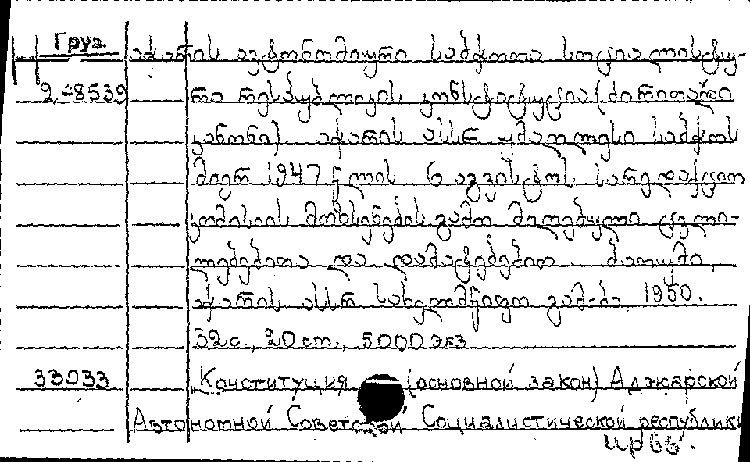 Груз. აჭარის ავტონომიური საბჭოთა სოციალისტუ-
2-8539 რი რესპუბლიკის კონსტიტუცია (ძირითადი
კანონი) აჭარის ასსრ უმაღლესი საბჭოს
მიერ 1947 წლის 6 აგვისტოს სარედაქციო
კომისიის მოხსენების გამო მიღებული ცვლი-
ლებებითა და დამატებებით. ბათუმი,
აჭარის ასსრ სახელმწიფო გამ-ბა, 1950.
32 с., 20 cm., 5000 экз
33033 Конституция (основной закон) Аджарской
Автономной Советской Социалистической республики